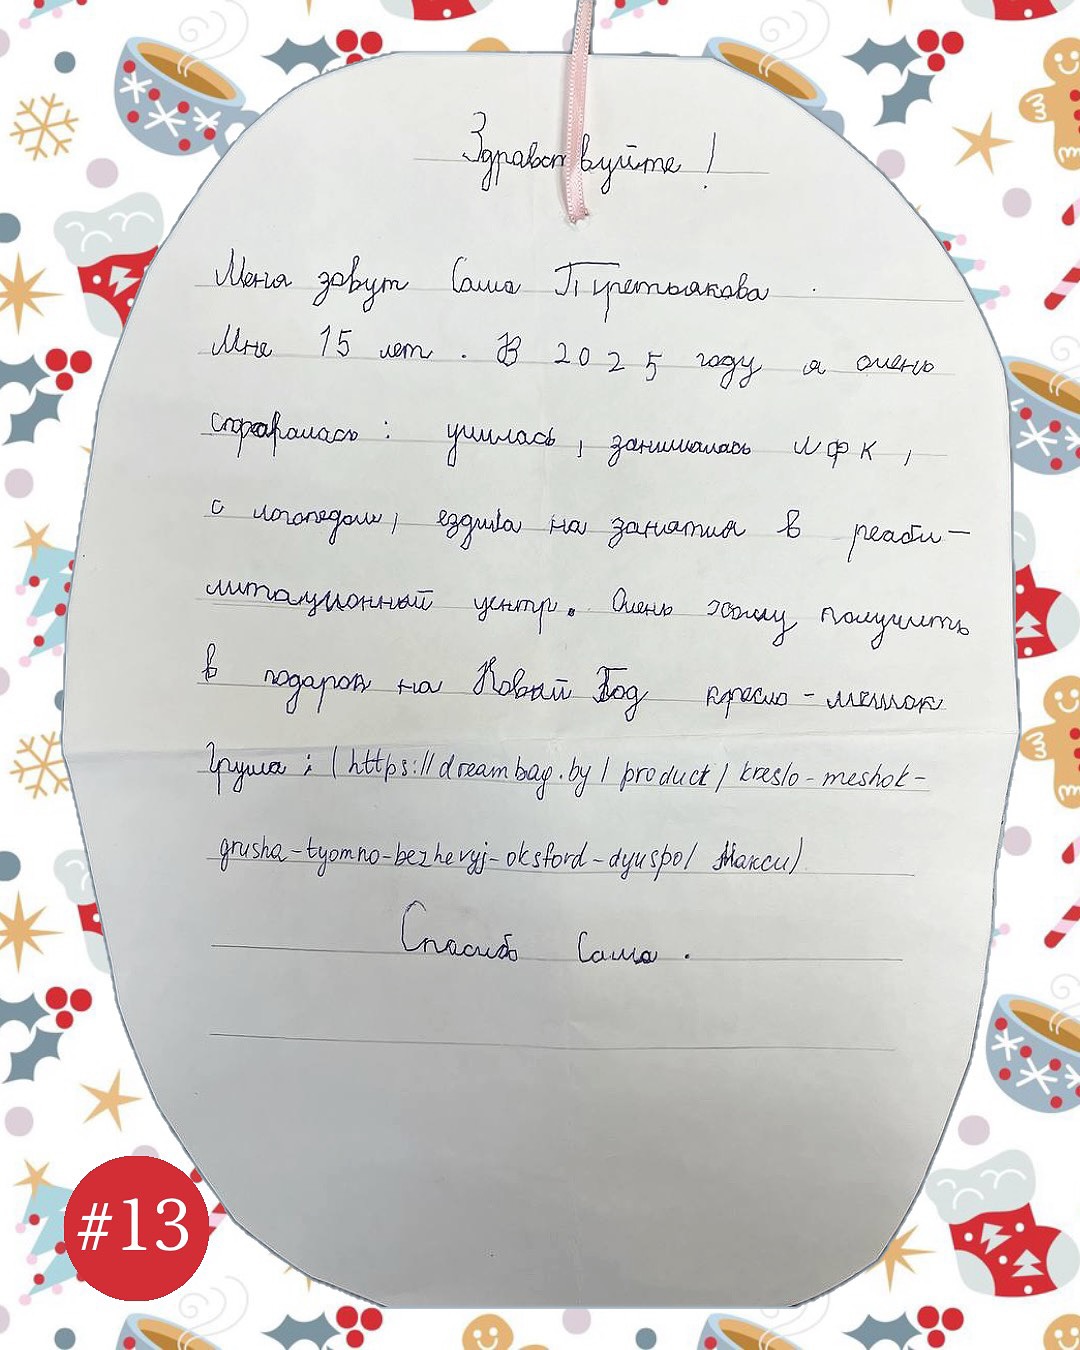 Здравствуйте !
Меня зовут Саша
Мне 15 лет . В 2025 году я очень
старалась : училась , занималась ЛФК ,
с логопедом, ездила на занятия в реаби-
литационный центр. Очень хочу получить
в подарок на Новый Год кресло-мешок
Груша : (https://dreambag.by/product/kreslo-meshok-
grusha-tyomno-bezhevyj-oksford-dyuspo/ Макси)
Спасибо Саша .
#13